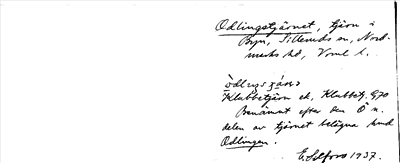 Odlingstjärnet, tjärn i
Byn, Silleruds sn, Nord-
marks hd, Vrml l.
Klubbetjärn ek, Klubbetj. G70
Benämnt efter den Ö n.
delen av tjärnet belägna
Odlingen.
E. Solfors 1937.